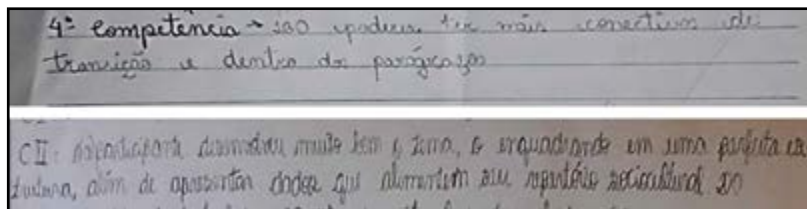 4ª Competência → 160 poderia ter mais conectivos de
transição e dentro dos parágrafos
CII: participante desenvolveu muito bem o tema, o enquadrando em uma perfeita es
trutura, além de apresentar dados que alimentam seu repertório sociocultural 200